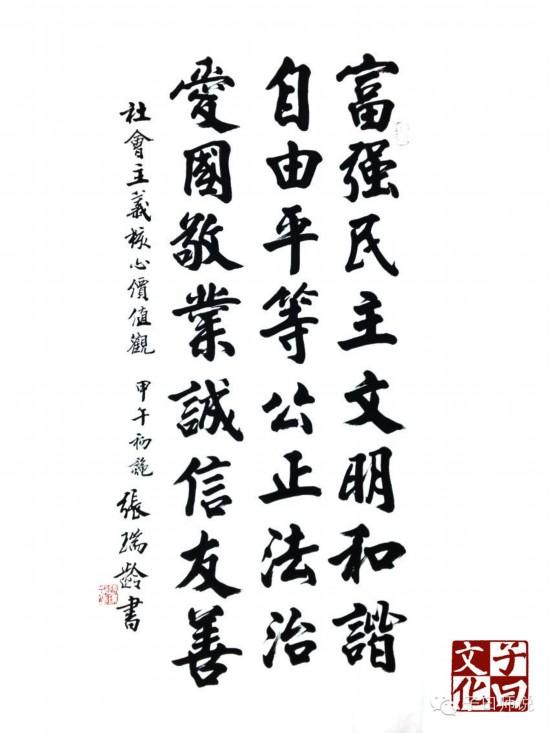 富强民主文明和諧
自由平等公正法治
愛國敬業誠信友善
社會主義核心價值觀
甲午初
張瑞齡書
子曰
文化